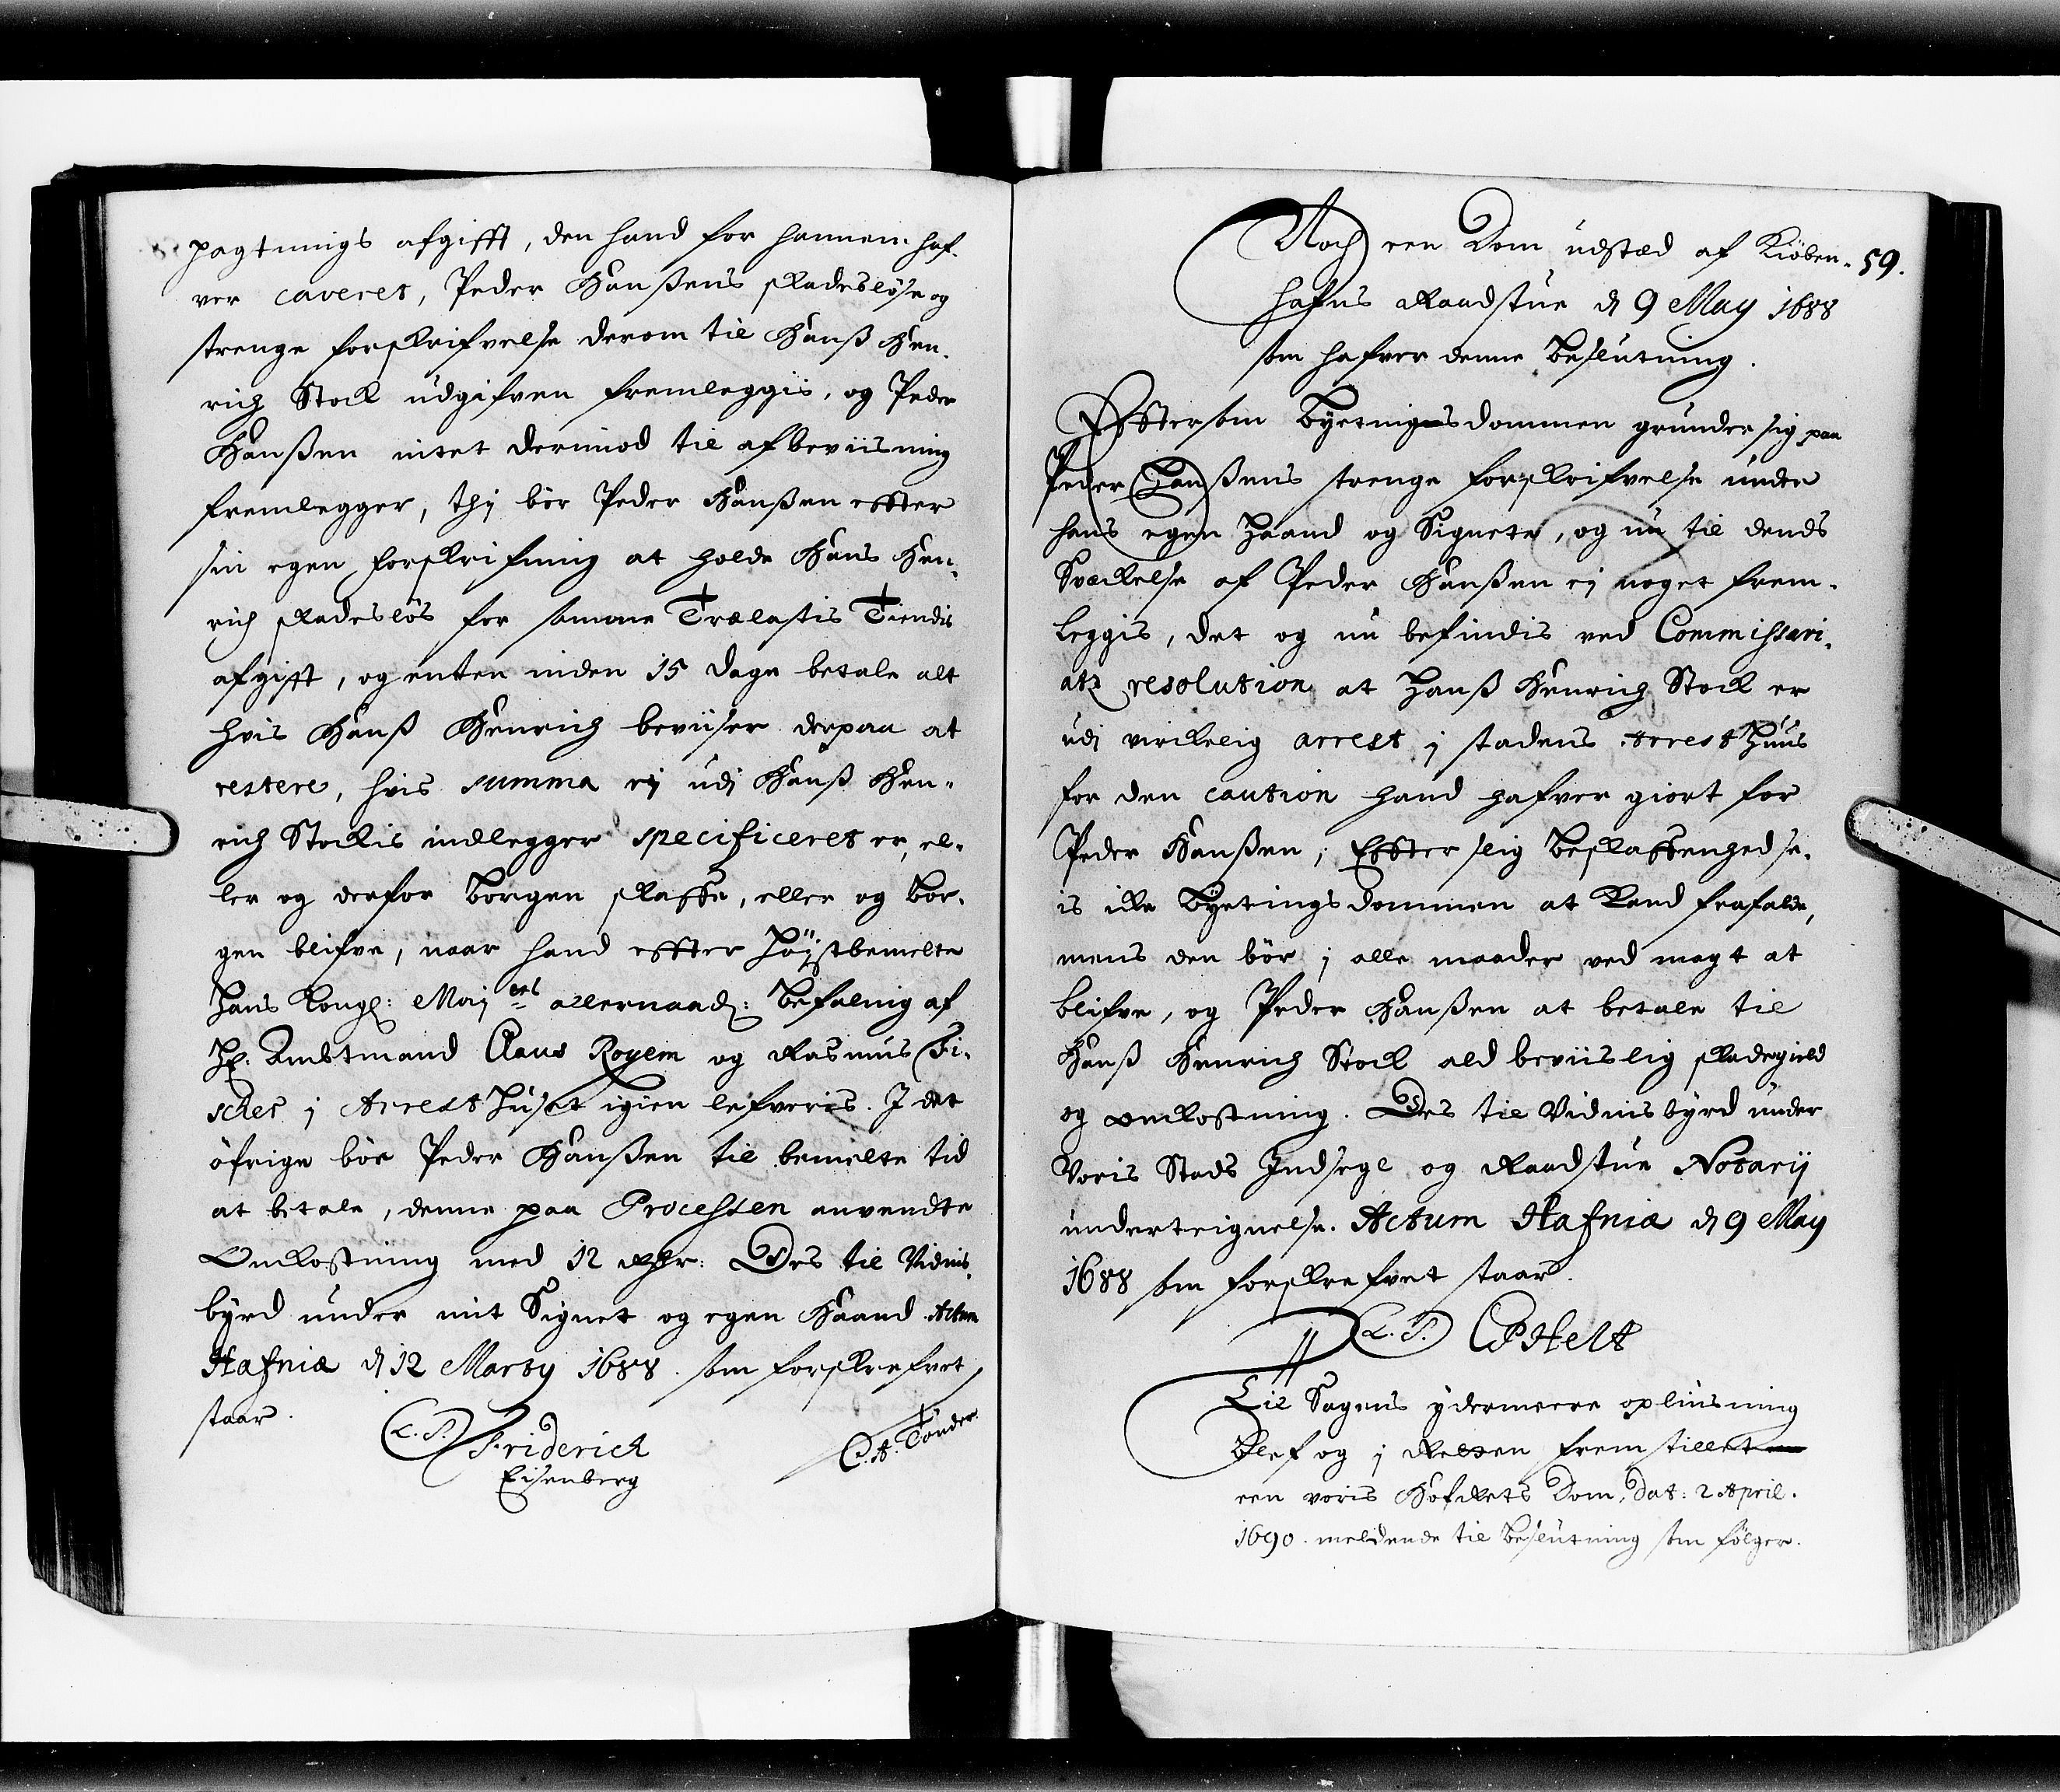 pagtnings afgifft, den hand for hannem haf-
ver caveret, Peder Hanßens skadesløse og
strenge forskrifvelse derom til Hanß Hen-
rich Stock udgifven fremleggis, og Peder
Hanßen intet derimod til afbeviisning
fremlegger, thj bør Peder Hanßen effter
sin egen forskrifning at holde Hans Hen-
rich skadesløs for samme Trælastis Tiendis
afgifft, og enten inden 15 dage betale alt
hvis Hanß Henrich beviiser derpaa at
restere, hvis summa ej udj Hanß Hen-
rich Stockis indlegger specificeret er, el-
ler og derfor Borgen skaffe, eller og Bor-
gen blifve, naar hand effter Høystbemelte
Hans Kongl: Maj:ts allernaad: Befalnig af
Hr. Ambtmand Claus Røyem og Rasmus Fi-
scher j Arrest Huset igien lefveris. I det
øfrige bør Peder Hanßen til bemelte tid
at betale, denne paa Processen anvendte
Omkostning med 12 Rdlr: Des til Vidnis-
byrd under mit Signet og egen Haand Actum
Hafniæ d 12 Marty 1688. som forskrefvet
staar.
L. S. Friderich
Eisenberg
C. A. Tønder.
59.
Noch een Dom udstæd af Kiøben-
hafns Raadstue d 9 May 1688
som hafver denne Beslutning.
Efftersom Byetingsdommen grunder sig paa
Peder Hanßens strenge forskrifvelse under
hans egen Haand og Signete, og nu til dends
Svækkelse af Peder Hanßen ej noget frem-
leggis, det og nu befindis ved Commissari-
atz resolution at Hanß Henrich Stock er
udj virkelig arrest j stadens Arrest Huus
for den caution hand hafver giort for
Peder Hanßen; Effter slig Beskaffenhed se-
is icke Byetingsdommen at kand frafalde,
mens den bør j alle maader ved magt at
blifve, og Peder Hanßen at betale til
Hanß Henrich Stock ald beviislig skadegield
og omkostning. Des til Vidnisbyrd under
Voris Stads Indsegl og Raadstue Notarij
underteignelse. Actum Hafniæ d 9 May
1688 som forskrefvet staar.
L. S. CP Helt
Til Sagens ydermeere opliusning
Blef og j Retten fremstillet
een voris Hofrets Dom, dat: 2 April.
1690. meldende til Beslutning som følger.